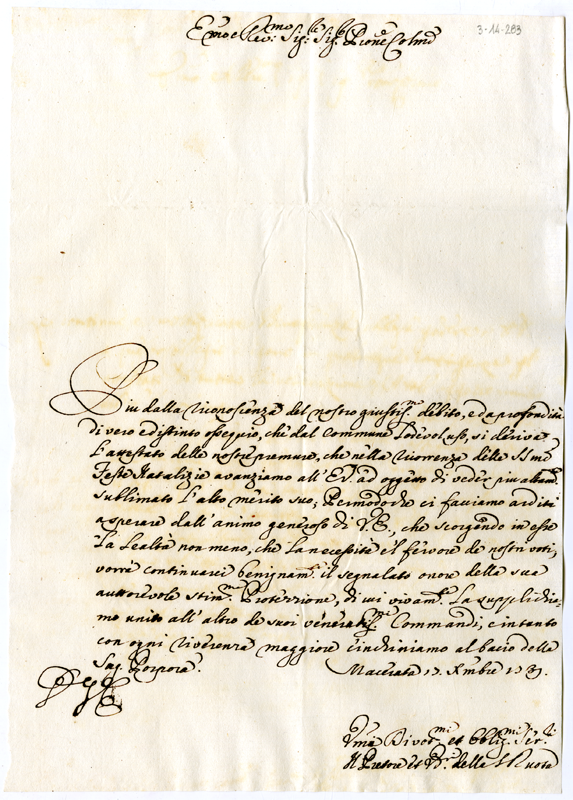 Emo e Rev.mo Sig.r Sig.r Prone Colmo
3-14-283
Più dalla riconoscenza del nostro giustiss.mo debito, ed a profondità
di vero e distinto ossequio, che dal commune lodevol uso, si deriva
l'attestato delle nostre premure, che nella ricorrenza delle SSme
Feste Natalizie avanziamo all'E.V. ad oggetto di veder più altam.te
sublimato l'alto merito suo; Per modo che ci facciamo arditi
a sperare dall'animo generoso di V.E., che scorgendo in esse
la lealtà non meno, che la necessità e il fervore de nostri voti,
vorrà continuarci benignam.te il segnalato onore della sua
auttorevole stim.ma Protezzione, di cui vivam.te La supplichia=
mo unito all'altro de suoi veneratiss.mi Commandi, e intanto
con ogni riverenza maggiore c'inchiniamo al bacio della
Sag. Porpora.
Macerata 17. Xmbre 17
Umi Divot.mi et Obblig.mi Ser.i
Il Pretore et della Ruota